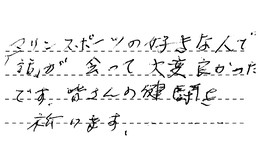 マリンスポーツの好きな人で
話が合って大変良かった
です。皆さんの健闘を
祈ります。